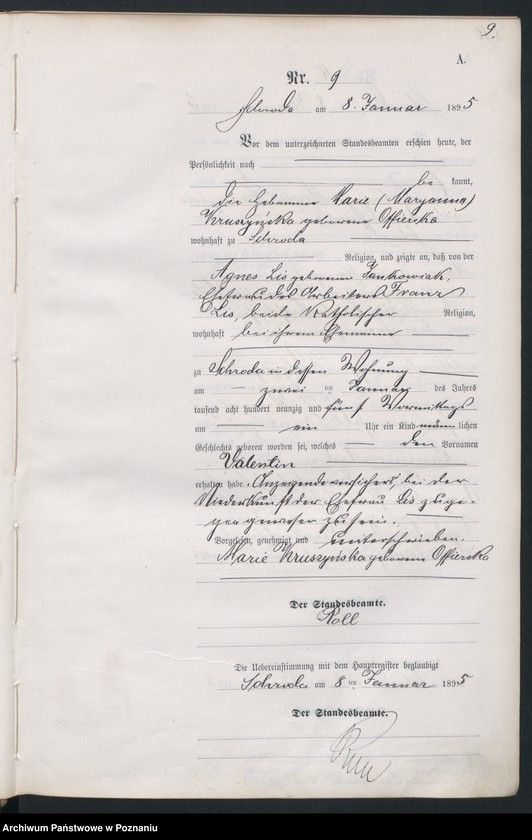 9.
A.
Nr. 9
Schroda am 8. Januar 1895
Vor dem unterzeichneten Standesbeamten erschien heute, der
Persönlichkeit nach
be kannt,
die Hebamme Marie (Maryanna)
Kruszyńska geborene Offierska
wohnhaft zu Schroda
Religion, und zeigte an, daß von der
Agnes Lis geborenen Jankowiak,
Ehefrau des Arbeiters Franz
Lis, beide katholischer Religion,
wohnhaft bei ihrem Ehemanne
zu Schroda in dessen Wohnung
am zwei ten Januar des Jahres
tausend acht hundert neunzig und fünf Vormittags
um ein Uhr ein Kind männlichen
Geschlechts geboren worden sei, welches den Vornamen
Valentin
erhalten habe. Anzeigende versichert, bei der
Niederkunft der Ehefrau Lis zuge-
gen gewesen zu sein.
Vorgelesen, genehmigt und unterschrieben.
Marie Kruszyńska geborene Offierska
Der Standesbeamte.
Roll
Die Uebereinstimmung mit dem Hauptregister beglaubigt
Schroda am 8 ten Januar 1895
Der Standesbeamte.
Archiwum Państwowe w Poznaniu